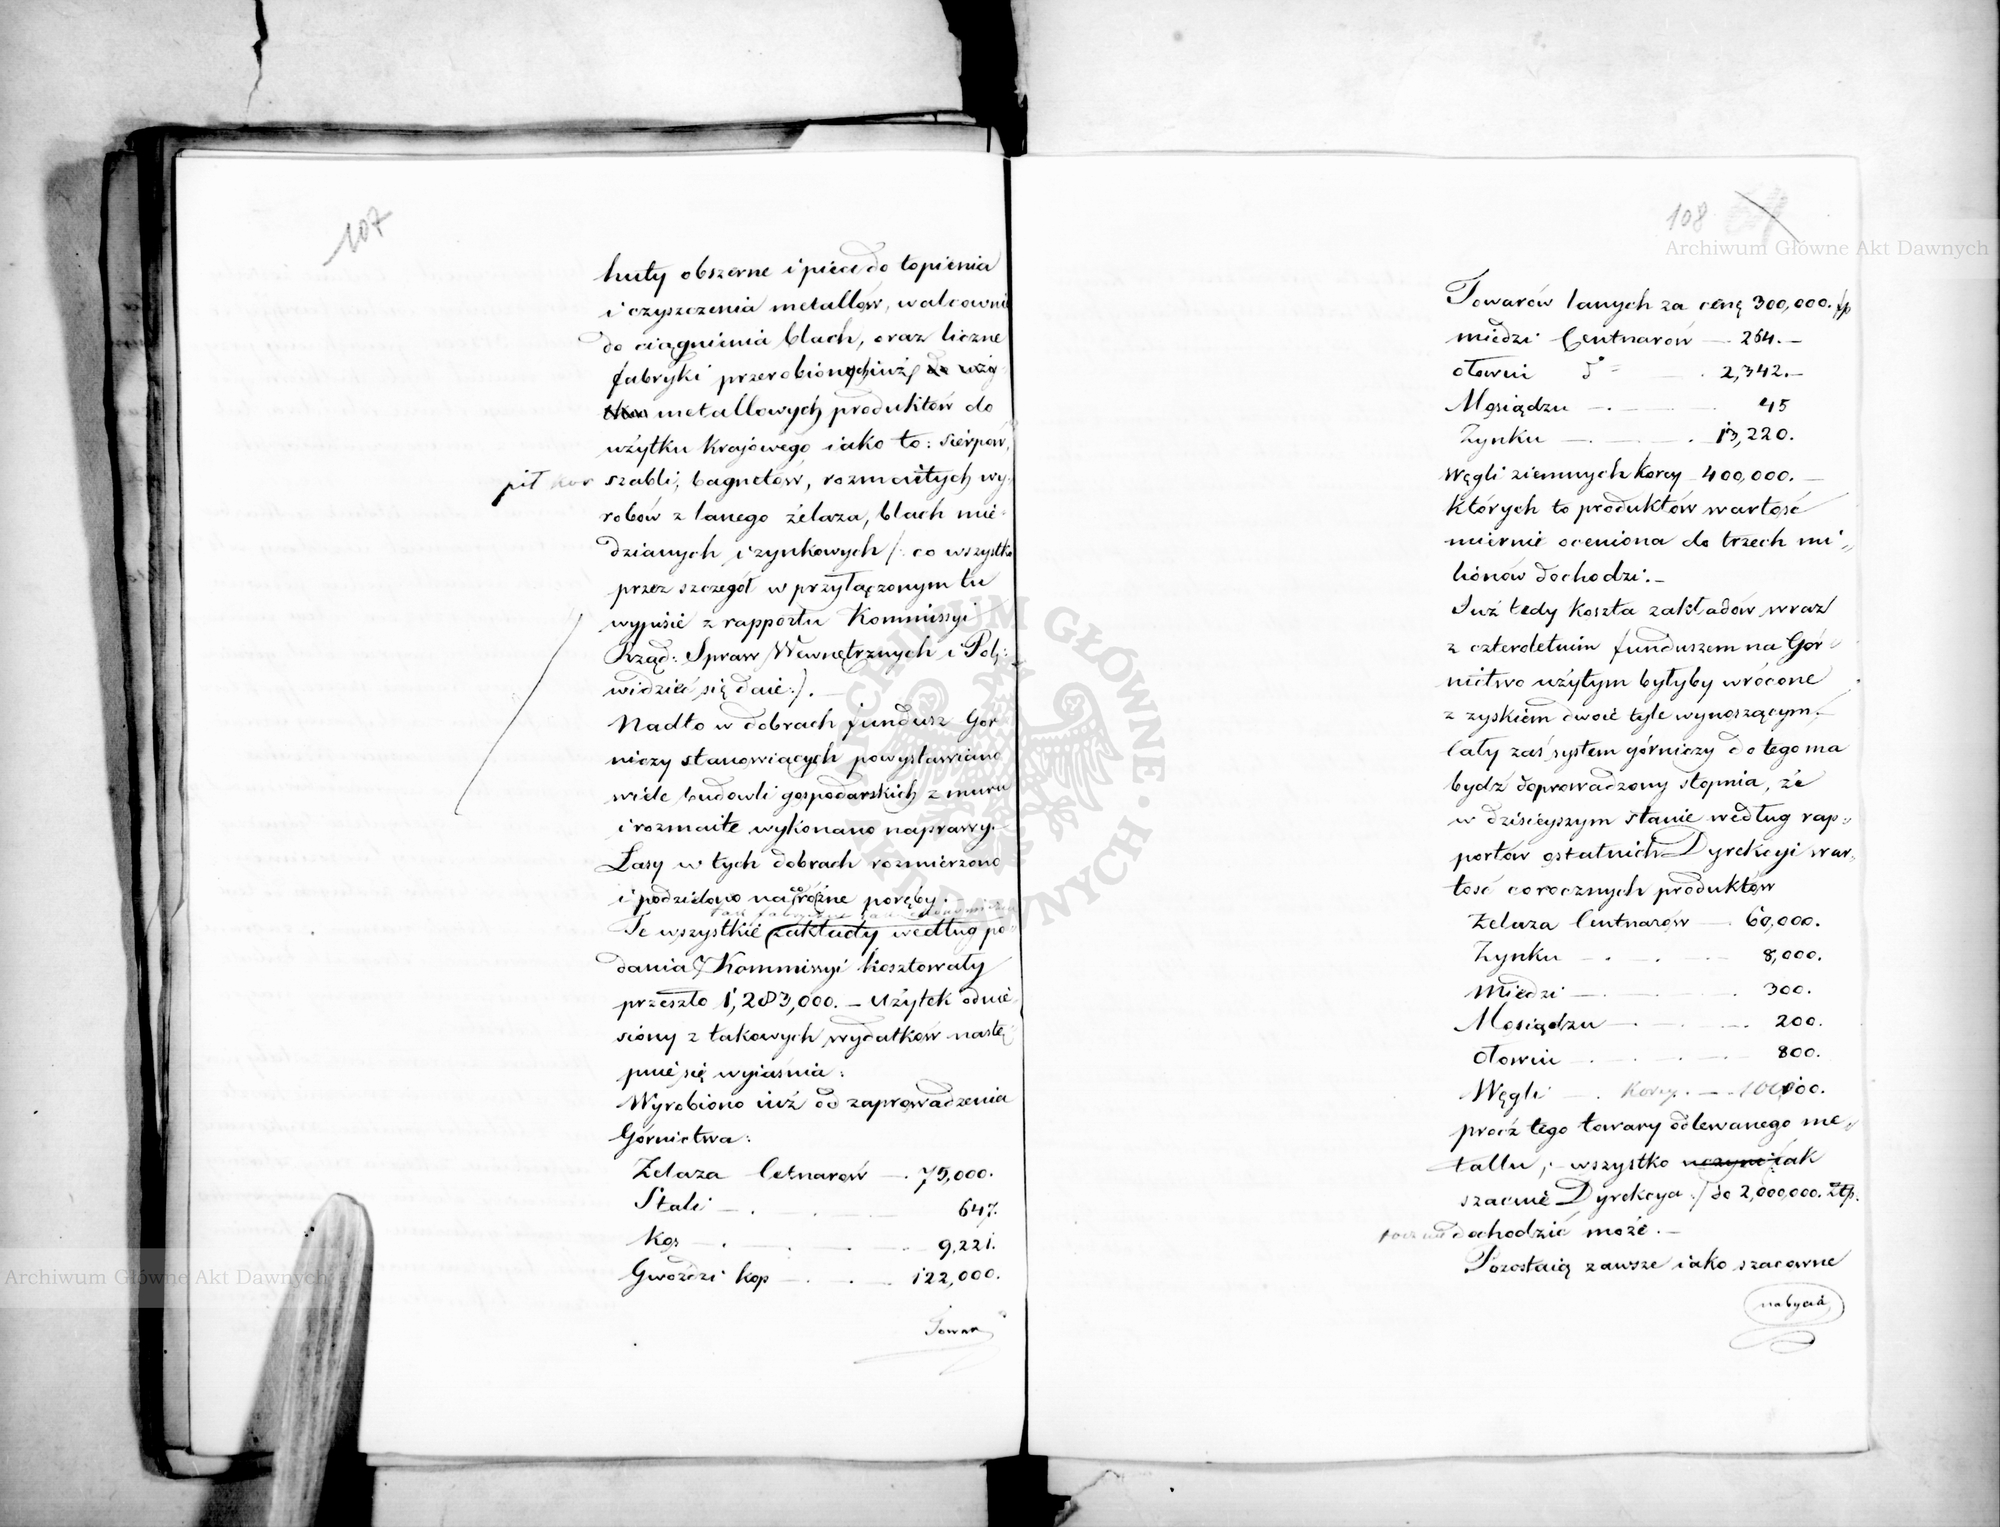 107
huty obszerne i piece do topienia
i czyszczenia metallów, walcownie
do ciągnienia blach, oraz liczne
fabryki przerobionych iuż
metallowych produktów do
użytku krajowego iako to: sierpów,
pił kos szabli, bagnetów, rozmaitych wy-
robów z lanego żelaza, blach mie-
dzianych i zynkowych /: co wszystko
przez szczegół w przyłączonym tu
wypisie z rapportu Kommissyi
Rząd: Spraw Wewnętrznych i Pol:
widzieć się daie :/. —
Nadto w dobrach fundusz Gór
niczy stanowiących powystawiano
wiele budowli gospodarskich z muru
i rozmaite wykonano naprawy.
Lasy w tych dobrach rozmierzono
i podzielono na różne poręby.
Te wszystkie zakłady według po-
dania Kommissyi kosztowały
przeszło 1,283,000. — Użytek odnie-
siony z takowych wydatków nastę-
pnie się wyiaśnia:
Wyrobiono iuż od zaprowadzenia
Górnictwa:
Żelaza Cetnarów — . 75,000.
Stali — . — . — 647.
Kos — . — . — 9,221.
Gwoździ kop — . — . — 122,000.
Towar
108
Towarów lanych za cenę 300,000. złp
miedzi Centnarów — 264. —
ołowiu — . 2,342. —
Mosiądzu — . — . — 45
Zynku — . — . — 13,220.
Węgli ziemnych korcy — 400,000. —
których to produktów wartość
miernie oceniona do trzech mi„
lionów dochodzi. —
Już tedy koszta zakładów wraz
z czteroletnim funduszem na Gór-
nictwo użytym byłyby wrócone
z zyskiem dwoie tyle wynoszącym. —
Cały zaś system górniczy do tego ma
bydź doprowadzony stopnia, że
w dzisieyszym stanie według rap-
portów ostatnich Dyrekcyi war-
tość corocznych produktów
Żelaza Centnarów — 60,000.
Zynku — . — . — 8,000.
Miedzi — . — . — 300.
Mosiądzu — . — . — 200.
Ołowiu — . — . — 800.
Węgli — . korcy. — 100,000.
prócz tego towary odlewanego me-
tallu, — wszystko uczyni iak
szacuie Dyrekcya :/ do 2,000,000. Złp.
dochodzić może. —
Pozostaią zawsze iako szacowne
nabycia
Archiwum Główne Akt Dawnych
Archiwum Główne Akt Dawnych
ARCHIWUM GŁÓWNE AKT DAWNYCH